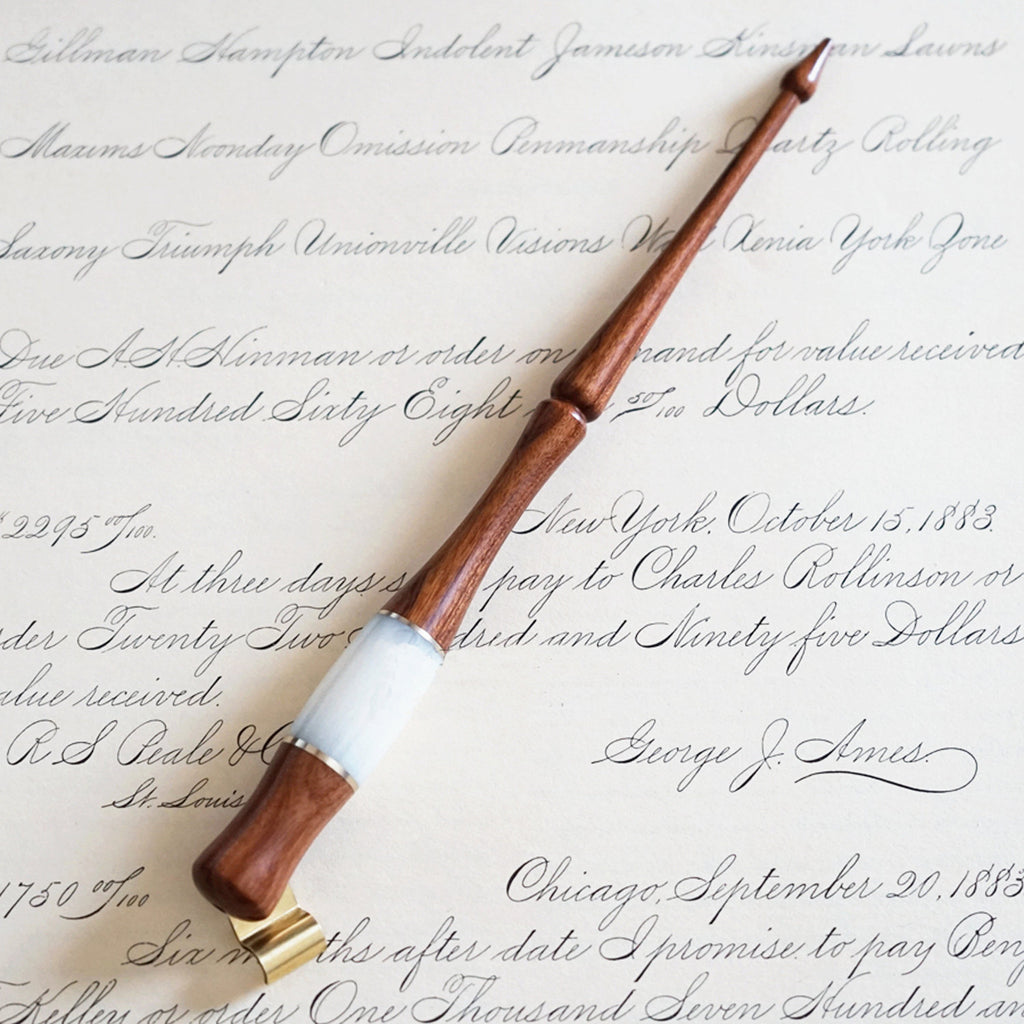 Gillman Hampton Indolent Jameson Kinsman Lawns
Maxims Noonday Omission Penmanship Quartz Rolling
Saxony Triumph Unionville Visions Xenia York Zone
Due A.H.Hinman or order on mand for value received
Five Hundred Sixty Eight 50/100 Dollars.
$2295 00/100. New York, October 15, 1883.
At three days s pay to Charles Rollinson or
der Twenty Two dred and Ninety five Dollars
alue received.
R S Peale & C George J. Ames.
St. Louis
1750 00/100 Chicago, September 20, 1883
Six m ths after date I promise to pay Benj
Kelley or order One Thousand Seven Hundred an